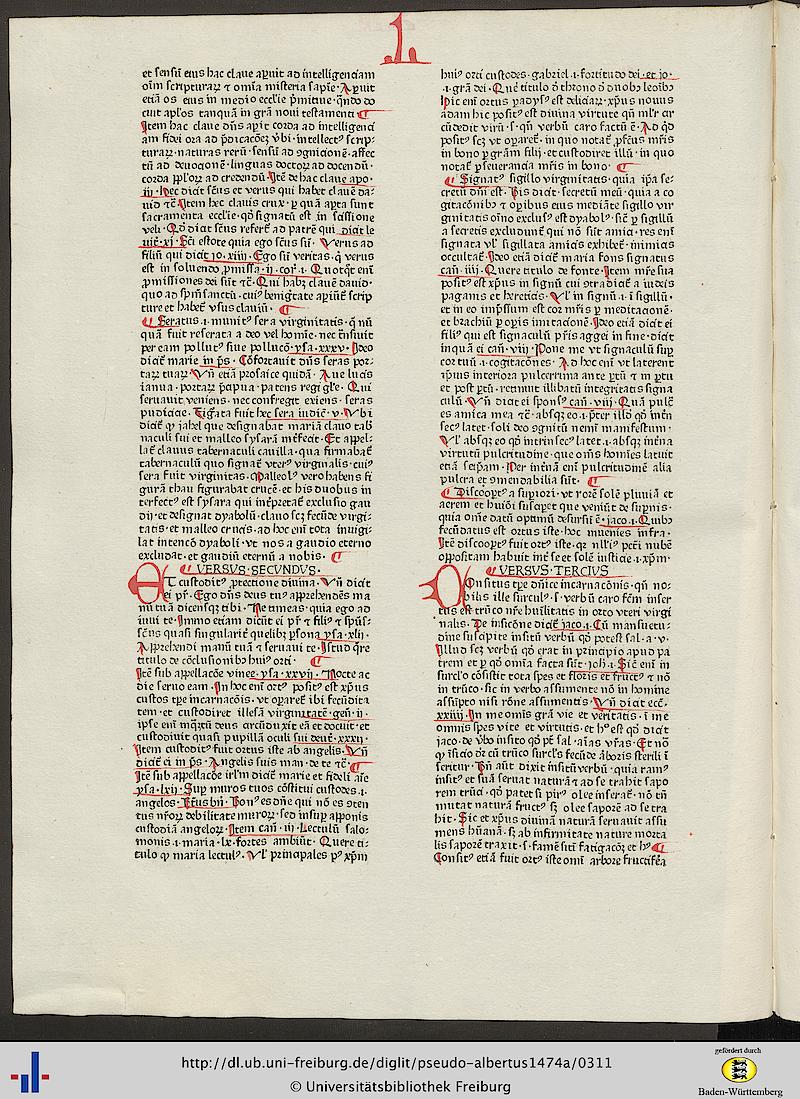 L
et sensū eius hac claue aꝑuit ad intelligenciam
oīm scripturaꝝ ⁊ omīa misteria sapīe · Aꝑuit
etiā os eius in medio eccl̄ie p̄mitiue · qn̄do do
cuit apl̄os tanquā in grā noui testamenti
Item hac claue dn̄s aꝑit corda ad intelligenci
am fidei ora ad p̄dicacōeꝫ v̄bi · intellectꝰ scrip-
turaꝝ · naturas rerū · sensū ad ꝯgnicionē · affec
tū ad deuoconē · linguas doctoꝝ ad docendū ·
corda ppl̄oꝝ ad credendū · Itē de hac claue apo ·
iij · Hec dicit sc̄tus et verus qui habet clauē da-
uid ⁊c̄ Item hec clauis crux · ꝑ quā aꝑta sunt
sacramenta eccl̄ie · qd̄ signatū est in scissione
veli · Qd̄ dicit sc̄tus refert̄ ad patrē qui dicit le
uit · xj · Sc̄i estote quia ego sc̄tus sū · Verus ad
filiū qui dicit jo · xiiij · Ego sū veritas · q̄ verus
est in soluendo ꝓmissa · ij · cor · i · Quotqt̄ enī
ꝓmissiones dei sūt ⁊c̄ · Qui habꝫ clauē dauid ·
quo ad sp̄m sanctū · cuiꝰ benignitate aꝑiūt̄ scrip
ture et habet̄ vsus clauiū ·
Seratus · i · munitꝰ sera virginitatis · q̄ nū
quā fuit reserata a deo vel homīe · nec trāsiuit
per eam pollutꝰ siue pollucō · ysa · xxxv · Ideo
dicit̄ marie in ps̄ · Cōfortauit dn̄s seras por-
taꝝ tuaꝝ · Vn̄ etiā prosaice quidā · Aue lucis
ianua · portaꝝ p̄papua · patens regi gl̄e · Qui
seruauit veniens, nec confregit exiens · seras
pudicicie · Figata fuit hec sera iudic̄ · v · Vbi
dicit̄ ꝙ jahel que designabat mariā clauo tab̄
naculi sui et malleo sysarā int̄fecit · Et appel-
lat̄ clauus tabernaculi cauilla · qua firmabat̄
tabernaculū quo signat̄ vterꝰ virginalis · cuiꝰ
sera fuit virginitas · Malleolꝰ vero habens fi
gurā thau figurabat crucē · et his duobus in
terfectꝰ est sysara qui int̄pretat̄ exclusio gau
dij · et designat dyabolū · clauo scꝫ fecūde virgi-
tatis · et malleo crucis · ad hoc enī tota inuigi-
lat intencō dyaboli · vt nos a gaudio eterno
excludat · et gaudiū eternū a nobis ·
VERSVS · SECVNDVS ·
ET custoditꝰ ꝓtectione diuina · Vn̄ dicit̄
ei pr̄ · Ego dn̄s deus tuꝰ apprehendēs ma
nū tuā dicensqꝫ tibi · Ne timeas · quia ego ad
iuui te · Immo etiam dicūt ei pr̄ ⁊ filiꝰ ⁊ sp̄usꝰ-
sc̄tus quasi singularit̄ quelibꝫ ꝑsona ysa · xlij ·
Apprehendi manū tuā ⁊ seruaui te · Istud q̄re
titulo de cōclusionibꝰ huiꝰ orti ·
Itē sub appellacōe vinee ysa · xxvij · Nocte ac
die seruo eam · In hoc enī ortꝰ positꝰ est xp̄us
custos tꝑe incarnacōis · vt oꝑaret̄ ibi fecūdita
tem · et custodiret illesā virginitatē · gen̄ · ij ·
ipse enī mqꝛtū deus circūduxit eā et docuit · et
custodiuit quasi pupillā oculi sui deut̄ · xxxij ·
Item custoditꝰ fuit ortus iste ab angelis · Vn̄
dicit̄ ei in ps̄ · Angelis suis man · de te ⁊c̄
Itē sub appellacōe irl̄m dicit̄ marie et fideli aīe
ysa · lxij · Suꝑ muros tuos cōstitui custodes · i ·
angelos · Ber̄sus bn̄i · Bonꝰ es dn̄e qui nō es ꝯten
tus nr̄oꝝ debilitate muroꝝ · sed insuꝑ apponis
custodiā angeloꝝ · Item can̄ · iij · Lectulū salo-
monis · i · maria · lx · fortes ambiūt · Quere ti-
tulo ꝙ maria lectulꝰ · Vl̄ principales pꝰ xp̄m
huiꝰ orti custodes · gabriel · i · fortitudo dei · et io ·
· i · grā dei · Que titulo d̄ throno d̄ duobꝰ leoībꝰ
Hic enī ortus ꝑadysꝰ est deliciaꝝ · xp̄us nouus
adam hic positꝰ est diuina virtute qn̄ ml̄r cir
cūdedit virū · s · qn̄ verbū caro factū ē · Ad qd̄
positꝰ scꝫ vt oꝑaret̄ · in quo notat̄ ꝓfcūs mr̄is
in bono ꝑ grām filij · et custodiret illū · in quo
notat̄ ꝑseuerancia mr̄is in bono ·
Signatꝰ sigillo virginitatis · quia ip̄a se-
cretū dn̄i est · His dicit · secretū meū · quia a co
gitacōnibꝰ ⁊ oꝑibus eius mediāte sigillo vir
ginitatis oīno exclusꝰ est dyabolꝰ · sic̄ ꝑ sigillū
a secretis excludunt̄ qui nō sūt amici · res enī
signata vl̄ sigillata amicis exhibet̄ · inimicis
occultat̄ · Ideo etiā dicit̄ maria fons signatus
can̄ · iiij · Quere titulo de fonte · Item mr̄e sua
positꝰ est xp̄us in signū cui ꝯtradicit̄ a iudeis
paganis et hereticis · Vl̄ in signū · i · ī sigillū ·
et in eo imp̄ssum est coꝛ mr̄is ꝑ meditacionē ·
et brachiū ꝑ oꝑis imitacionē · Ideo etiā dicit ei
filiꝰ qui est signaculū pr̄is aggei in fine · dicit
inquā ei can̄ · viij · Pone me vt signaculū suꝑ
cor tuū · i · cogitacōnes · Ad hoc enī vt laterent
ip̄ius interiora pulcerrima ante ꝑtū ⁊ in ꝑtu
et post ꝑtū · retinuit illibatū integritatis signa
culū · Vn̄ dicit ei sponsꝰ can̄ · viij · Quā pulc̄
es amica mea ⁊c̄ · absqꝫ eo · i · p̄ter illd̄ qd̄ intrī
secꝰ latet · soli deo ꝯgnitū nemī manifestum ·
Vl̄ absqꝫ eo qd̄ intrinsecꝰ latet · i · absqꝫ int̄na
virtutū pulcritudine · que om̄s homīes latuit
etiā seip̄am · Per int̄nā enī pulcritudinē alia
pulcra et ꝯmendabilia sūt ·
Discooꝑtꝰ a suꝑiori · vt rorē solē pluuiā et
aerem et huiꝰdi susciꝑet que veniūt de suꝑnis ·
quia om̄e datū optimū desursū ē · jaco · i · Quibꝰ
fecūdatus est ortus iste · hoc muenies infra ·
Itē discooꝑtꝰ fuit ortꝰ iste · qꝛ nll̓iꝰ pctī nubē
oppositam habuit int̄ se et solē iusticie · i · xp̄m ·
VERSVS TERCIVS
COnsitus tꝑe dn̄ice incarnacōnis · qn̄ no-
bilis ille surculꝰ · s · verbū caro fc̄m inser
tus est trūco nr̄e hūilitatis in orto vteri virgi
nalis · De insicōne dicit̄ jaco · i · Cū mansuetu-
dine suscipite insitū verbū qd̄ potest sal · a · v ·
Illud scꝫ verbū qd̄ erat in principio apud pa
trem et ꝑ qd̄ omīa facta sūt · joh · i · Sic̄ enī in
surcl̄o cōsistit tota spes et floris et fructꝰ ⁊ nō
in trūco · sic in verbo assumente nō in homine
assūpto nisi rōne assumentis · Vn̄ dicit ecc̄ ·
xxiiij · In me omīs grā vie et veritatis · ī me
omnis spes vite et virtutis · et hꝰ est qd̄ dicit
jaco · de v̄bo insito qd̄ pt̄ sal · aīas vr̄as · Et nō
ꝙ īsicio oꝛ cū trūco surcl̄s fecūde arboris sterili ī
seritur · Bn̄ aūt dixit insitū verbū · quia ramꝰ
insitꝰ et suā seruat naturā ⁊ ad se trahit sapo
rem trūci · qd̄ patet si pirꝰ olee inserat̄ · nō tn̄
mutat naturā fructꝰ sꝫ olee saporē ad se tra
hit · Sic et xp̄us diuinā naturā seruauit assu
mens hūanā · sꝫ ab infirmitate nature morta
lis saporē traxit · s · famē sitī fatigacōꝫ et hꝰ
Consitꝰ etiā fuit ortꝰ iste omī arbore fructifera
http://dl.ub.uni-freiburg.de/diglit/pseudo-albertus1474a/0311
© Universitätsbibliothek Freiburg
gefördert durch
Baden-Württemberg